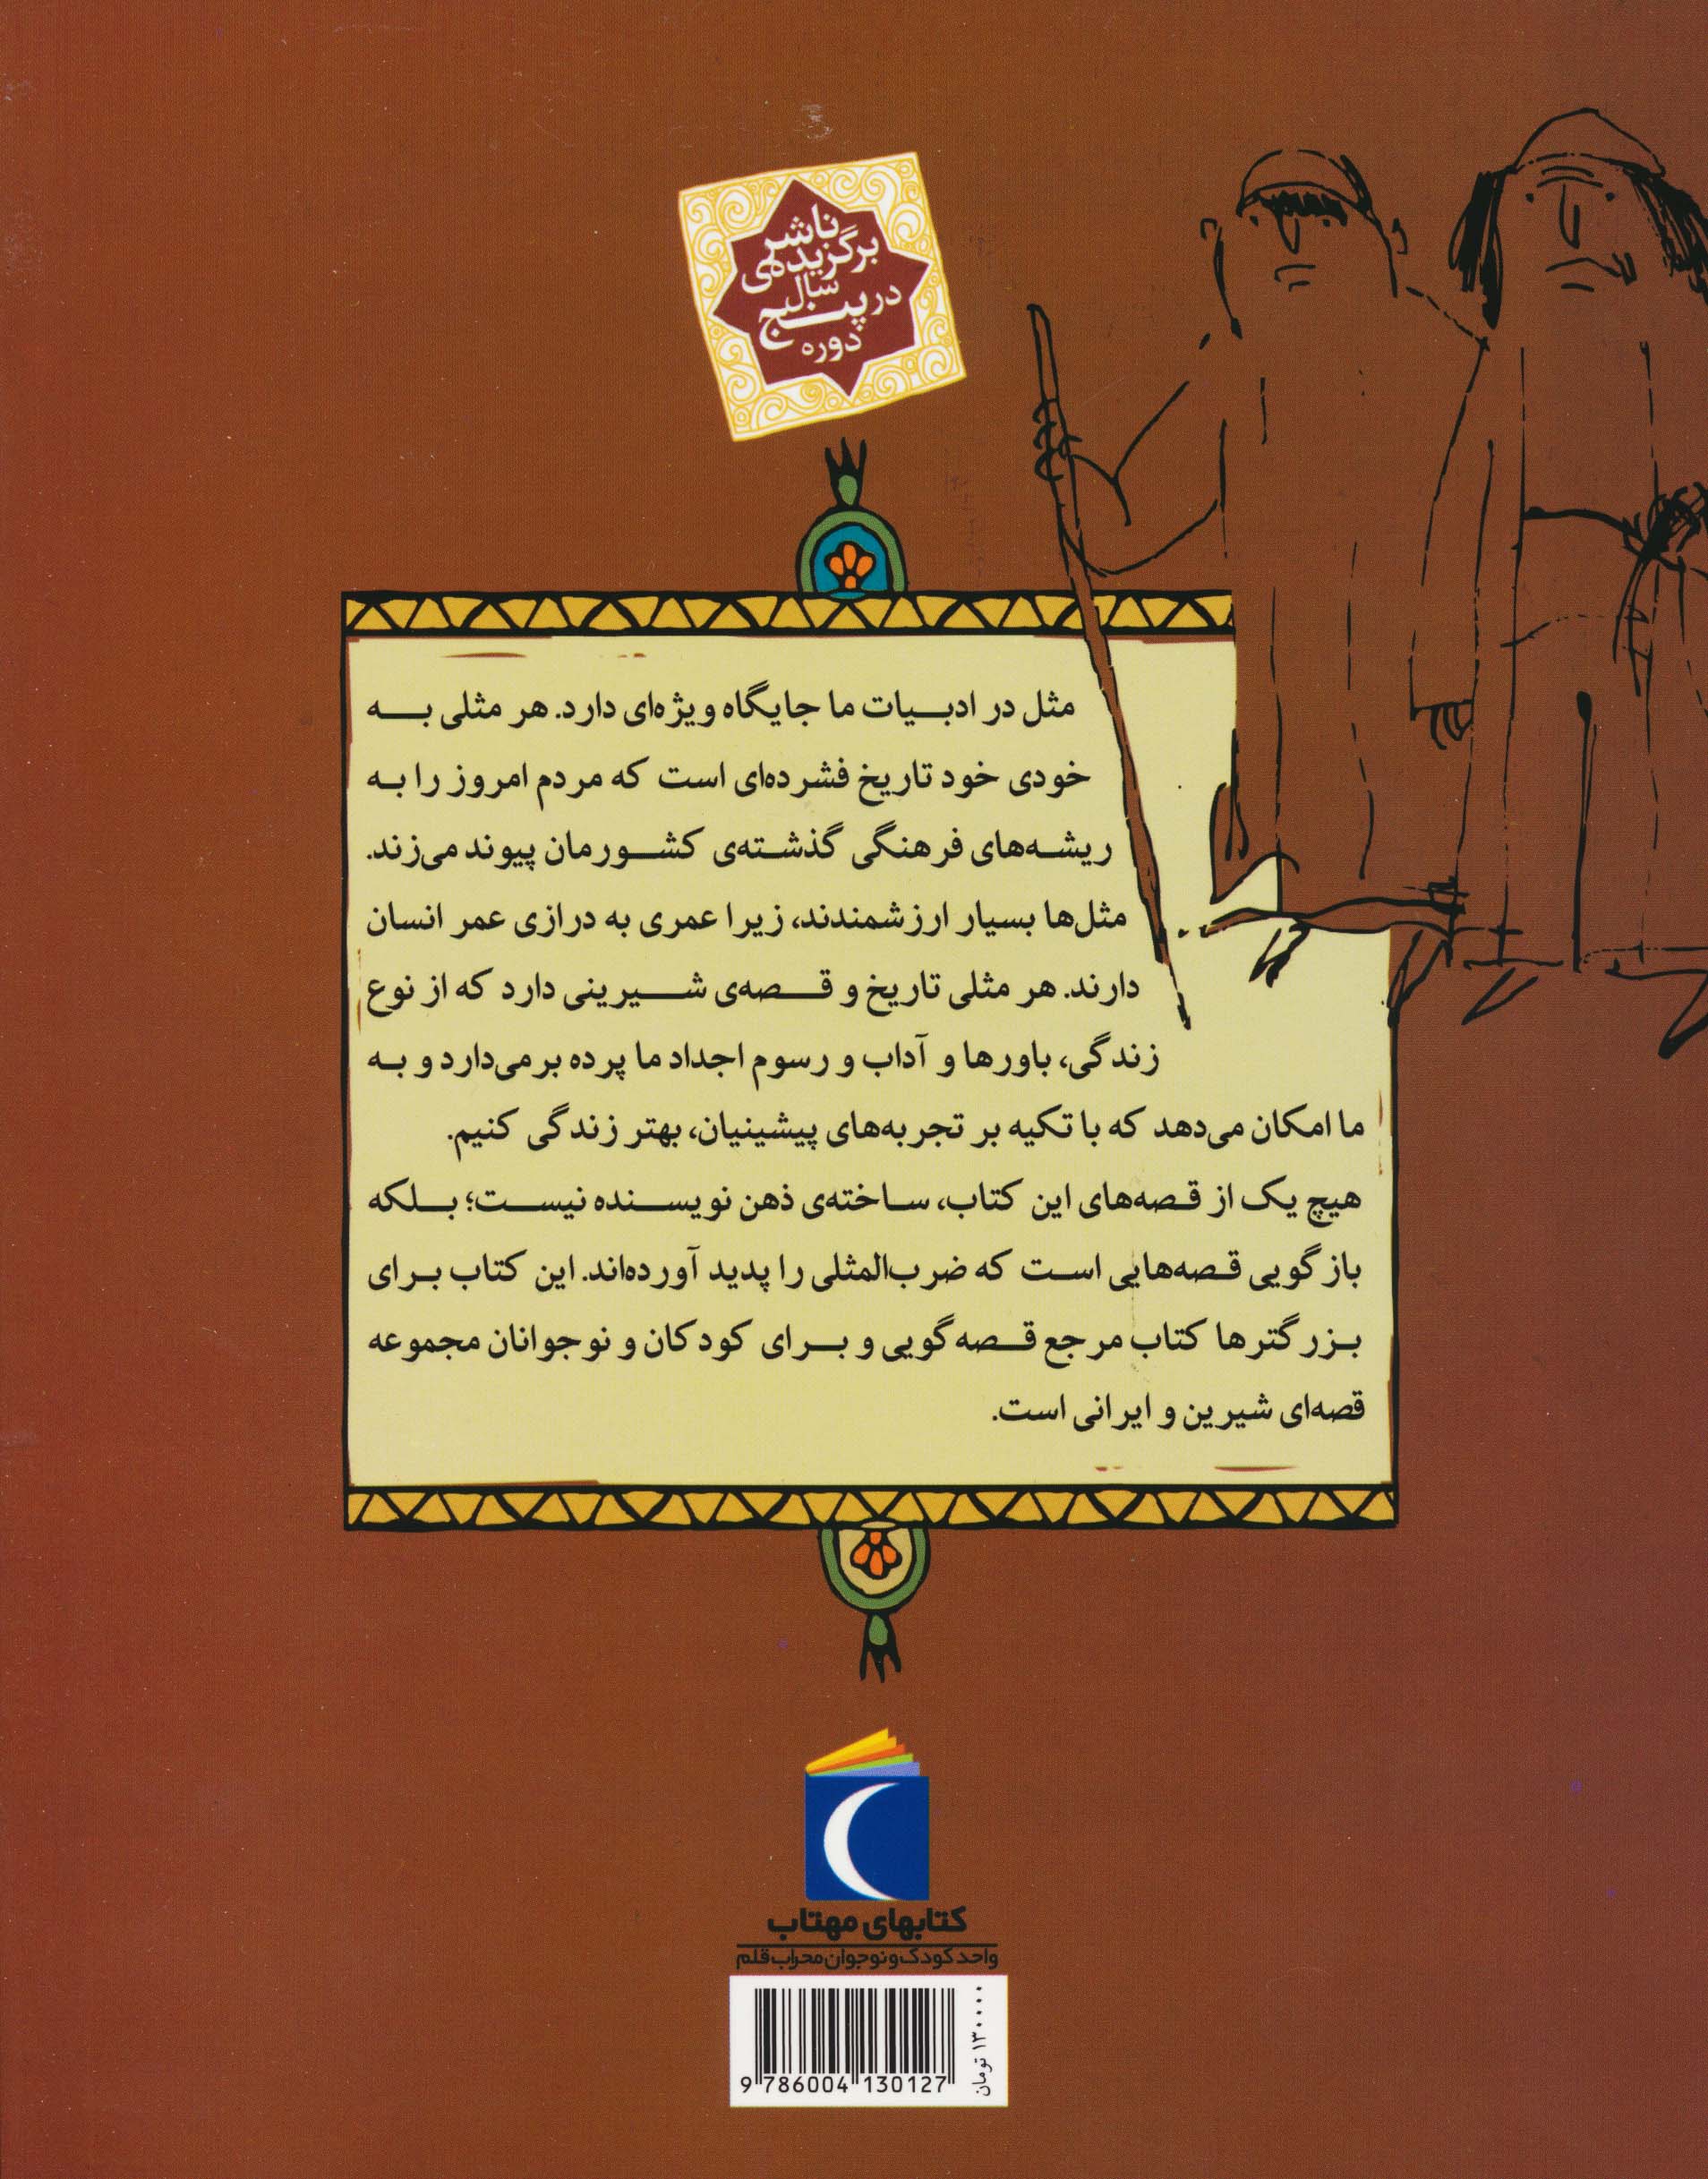 ناشر
برگزیده‌ی
سال
در پنج
دوره
مثل در ادبیات ما جایگاه ویژه‌ای دارد. هر مثلی به
خودی خود تاریخ فشرده‌ای است که مردم امروز را به
ریشه‌های فرهنگی گذشته‌ی کشورمان پیوند می‌زند.
مثل‌ها بسیار ارزشمندند، زیرا عمری به درازی عمر انسان
دارند. هر مثلی تاریخ و قصه‌ی شیرینی دارد که از نوع
زندگی، باورها و آداب و رسوم اجداد ما پرده برمی‌دارد و به
ما امکان می‌دهد که با تکیه بر تجربه‌های پیشینیان، بهتر زندگی کنیم.
هیچ یک از قصه‌های این کتاب، ساخته‌ی ذهن نویسنده نیست؛ بلکه
بازگویی قصه‌هایی است که ضرب‌المثلی را پدید آورده‌اند. این کتاب برای
بزرگترها کتاب مرجع قصه‌گویی و برای کودکان و نوجوانان مجموعه
قصه‌ای شیرین و ایرانی است.
کتابهای مهتاب
واحد کودک و نوجوان محراب قلم
۱۳۰۰۰۰ تومان
9 786004 130127